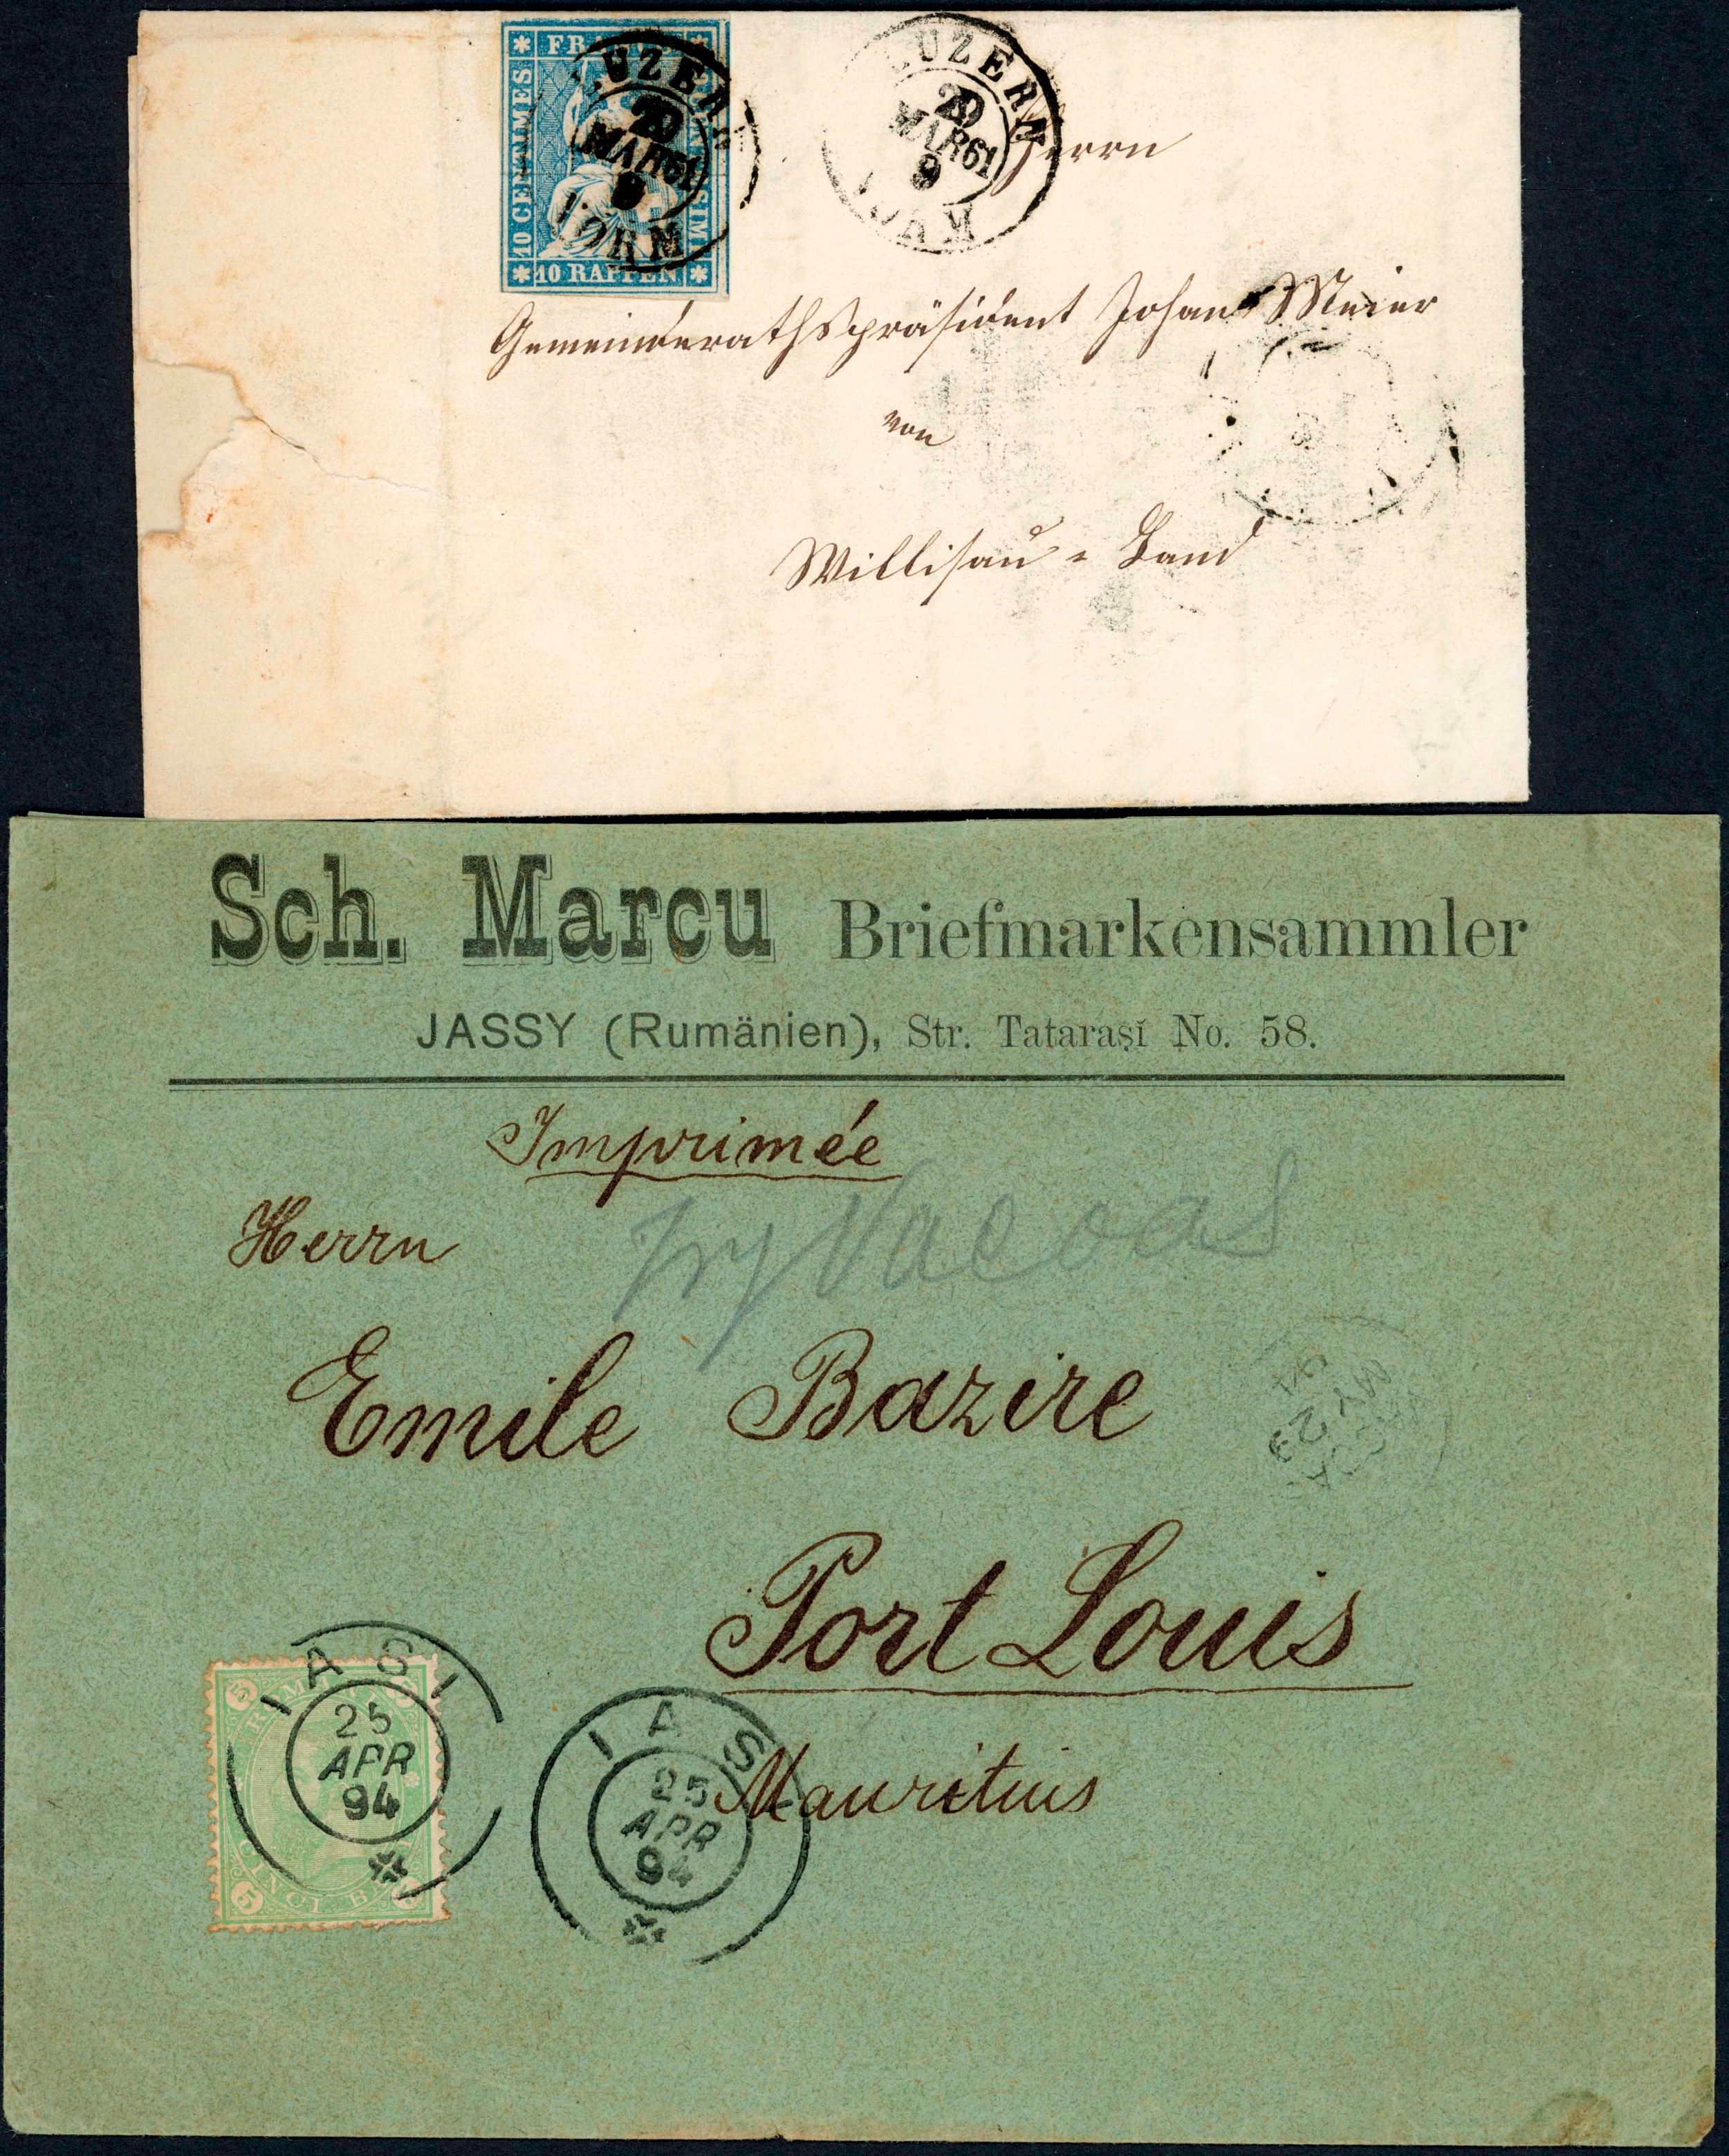 10 CENTIMES
10 RAPPEN
LUZERN
29
MAR 61
9
VORM
LUZERN
29
MAR 61
9
Herrn
Gemeinderathspräsident Johann Meier
von
Willisau = Land
Sch. Marcu Briefmarkensammler
JASSY (Rumänien), Str. Tatarașĭ No. 58.
Imprimée
Herrn
Try Vacoas
Emile Bazire
MY 23
Port Louis
Mauritius
IASI
25
APR
94
5
5
CINCI BANI
IASI
25
APR
94